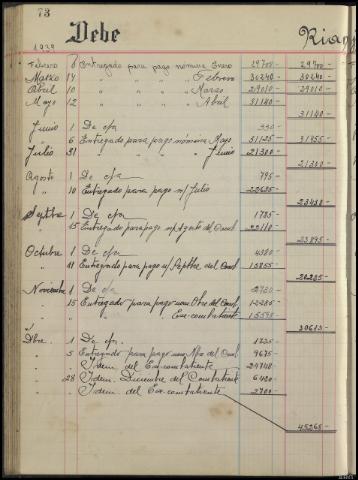 73
1939 Debe Rian
Febrero 6 Entregado para pago nómina Enero 29700- 29700-
Marzo 14 " " " " Febrero 30240- 30240-
Abril 10 " " " " Marzo 29010- 29010-
Mayo 12 " " " " Abril 31140-
31140-
Junio 1 De cta
6 Entregado para pago nómina Mayo 31125-
Julio 31 " " " " Junio 21300-
21300-
Agosto 1 De cta 795-
" 10 Entregado para pago n/ Julio 22635-
Septbre 1 De cta 1785-
15 Entregado para pago n/ Agosto del Comb. 22110-
23895-
Octubre 1 De cta
" 11 Entregado para pago n/ Septbre del Comb. 15855-
Noviembre 1 De cta
" 15 Entregado para pago nom Obre del Comb.
" " Ex-combatiente
30613-
Dbre. 1 De cta. 1335-
" 5 Entregado para pago nom Nbre del Comb. 9675-
" " Idem. del Ex-combatiente
" 28 Idem. Diciembre del Combatiente 6420-
" " Idem. del Ex-combatiente
45265-